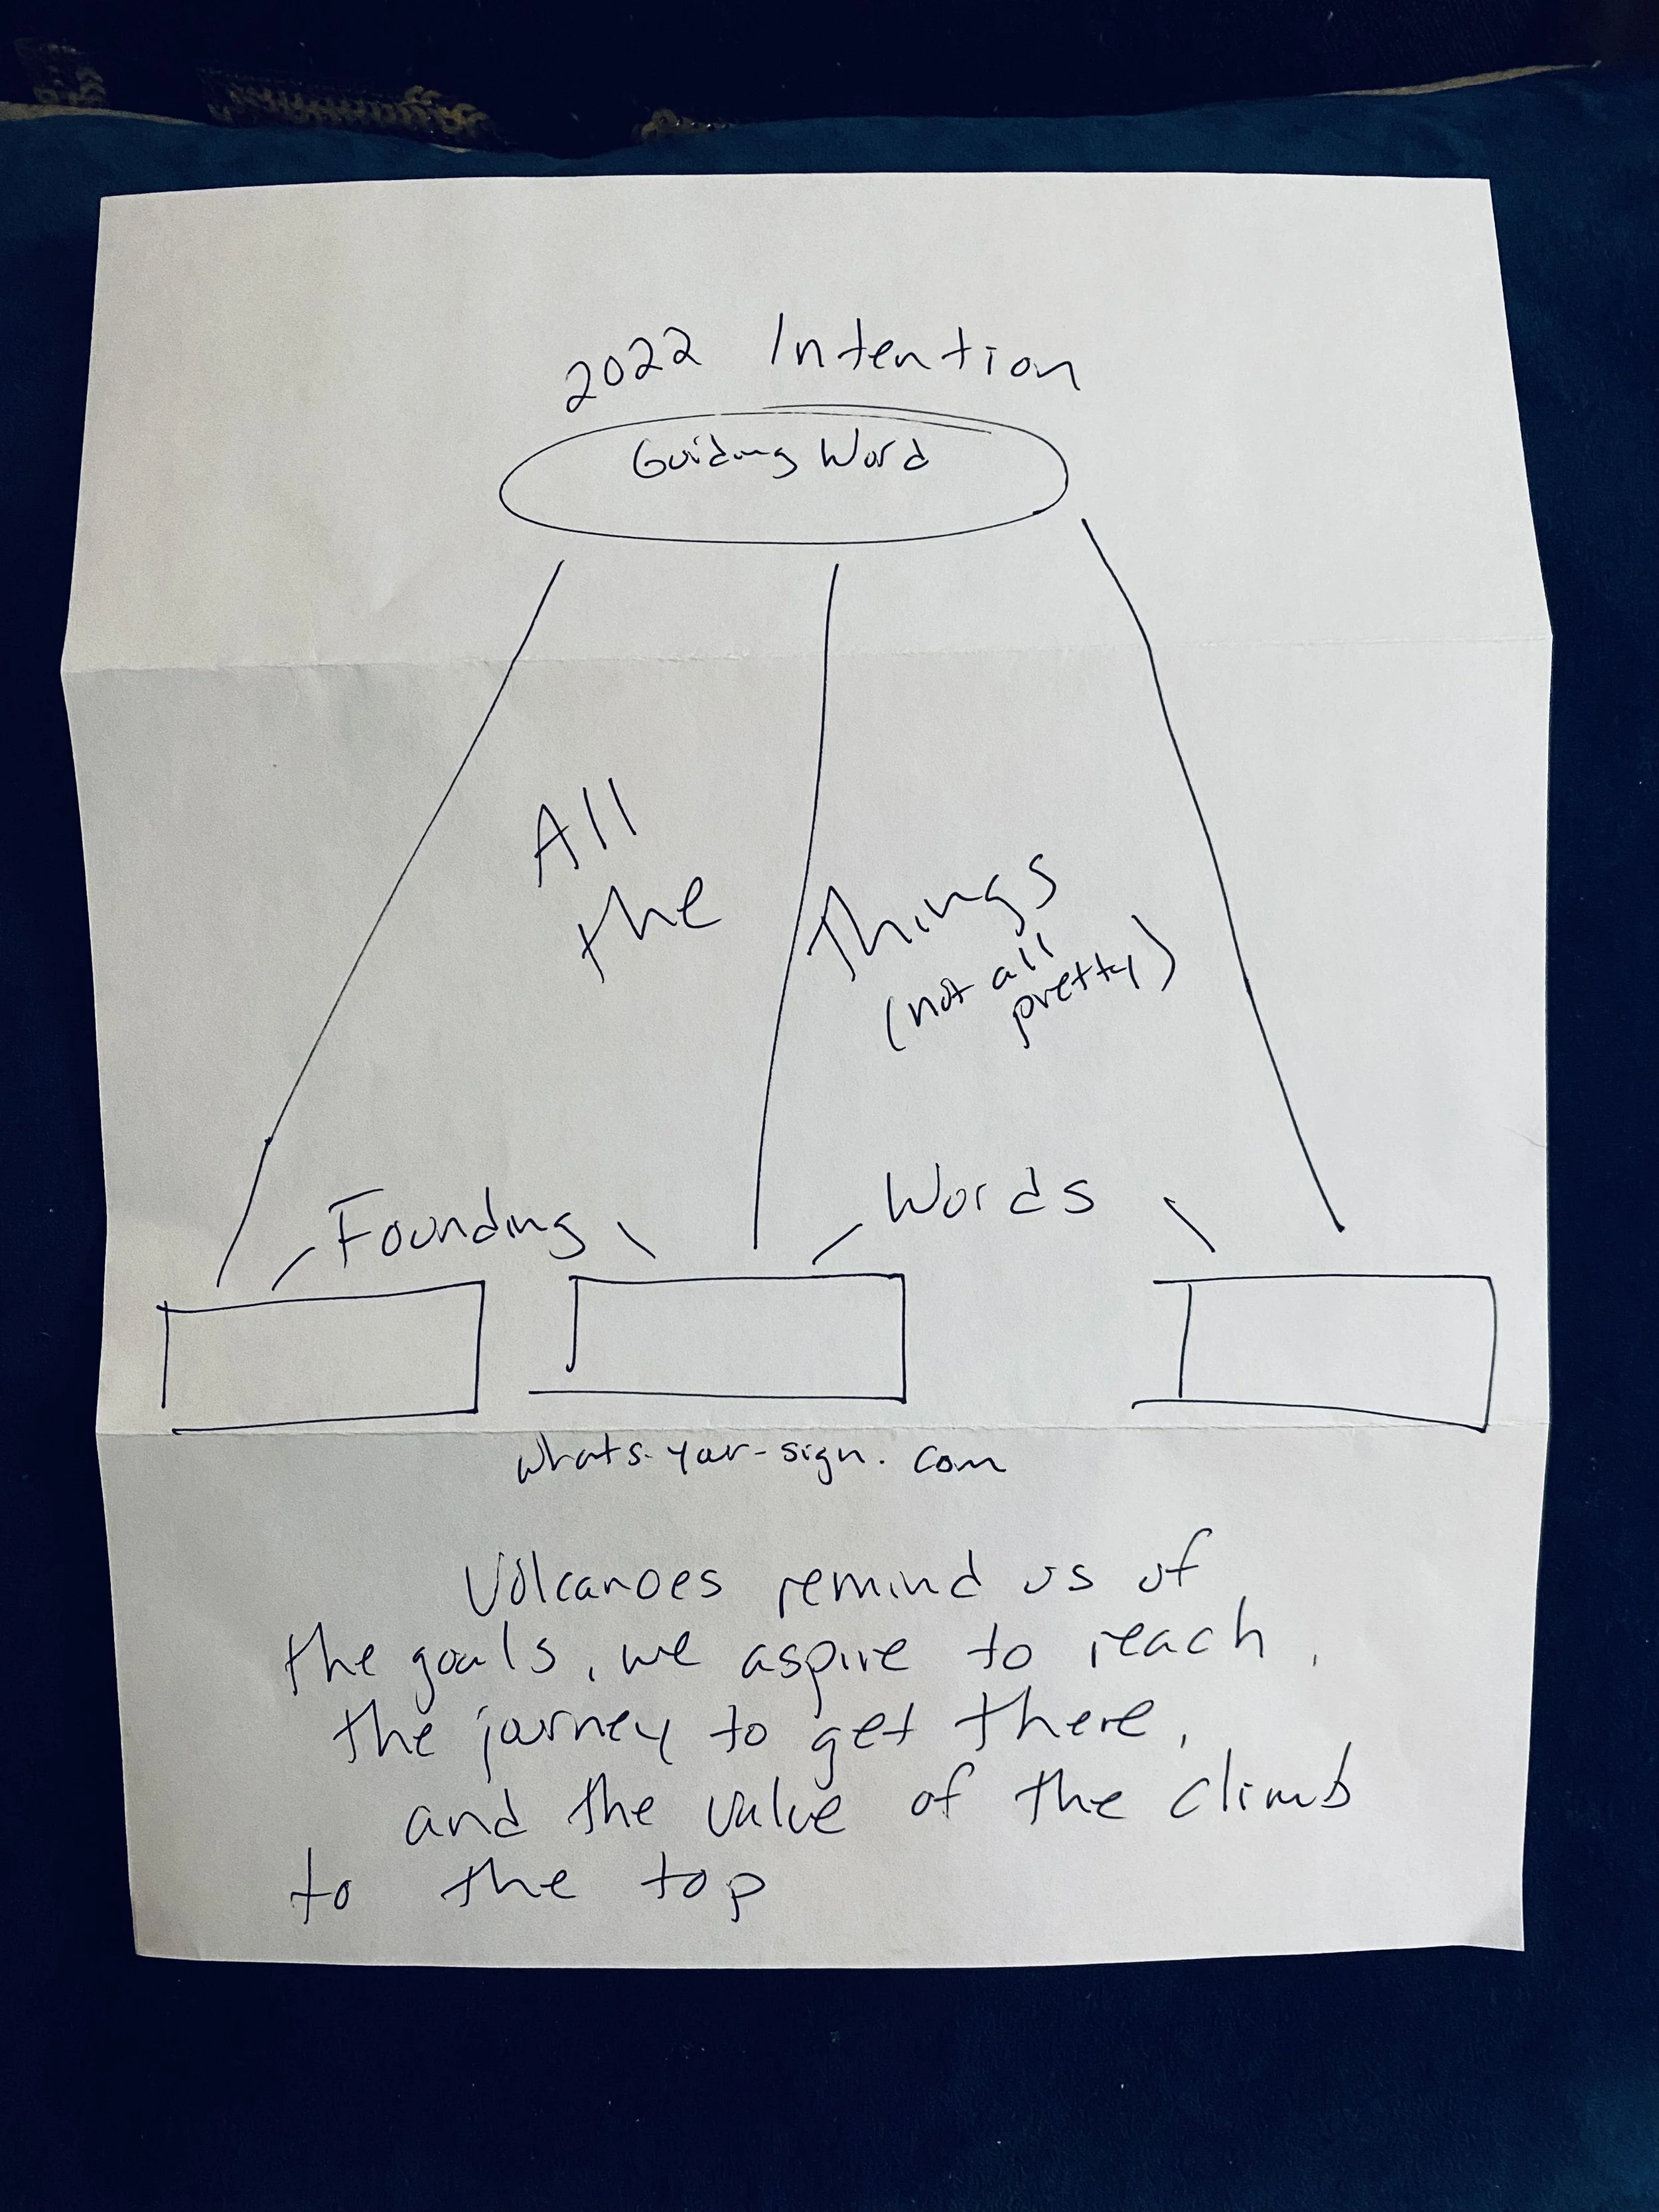 2022 Intention
Guiding Word
All
the
Things
(not all
pretty)
Founding
Words
whats-your-sign.com
Volcanoes remind us of
the goals, we aspire to reach,
the journey to get there,
and the value of the climb
to the top